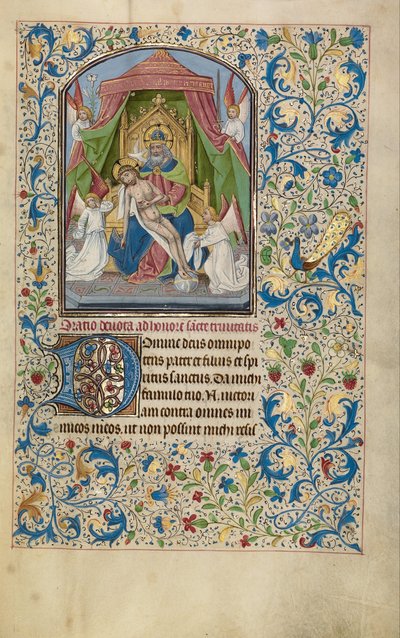 Oratio devota ad honorē sācte trinitatis
Domine deus omnipo
tens pater et filius et spi
ritus sanctus. Da michi
famulo tuo. N. victori
am contra omnes ini
micos meos. ut non possint michi resis